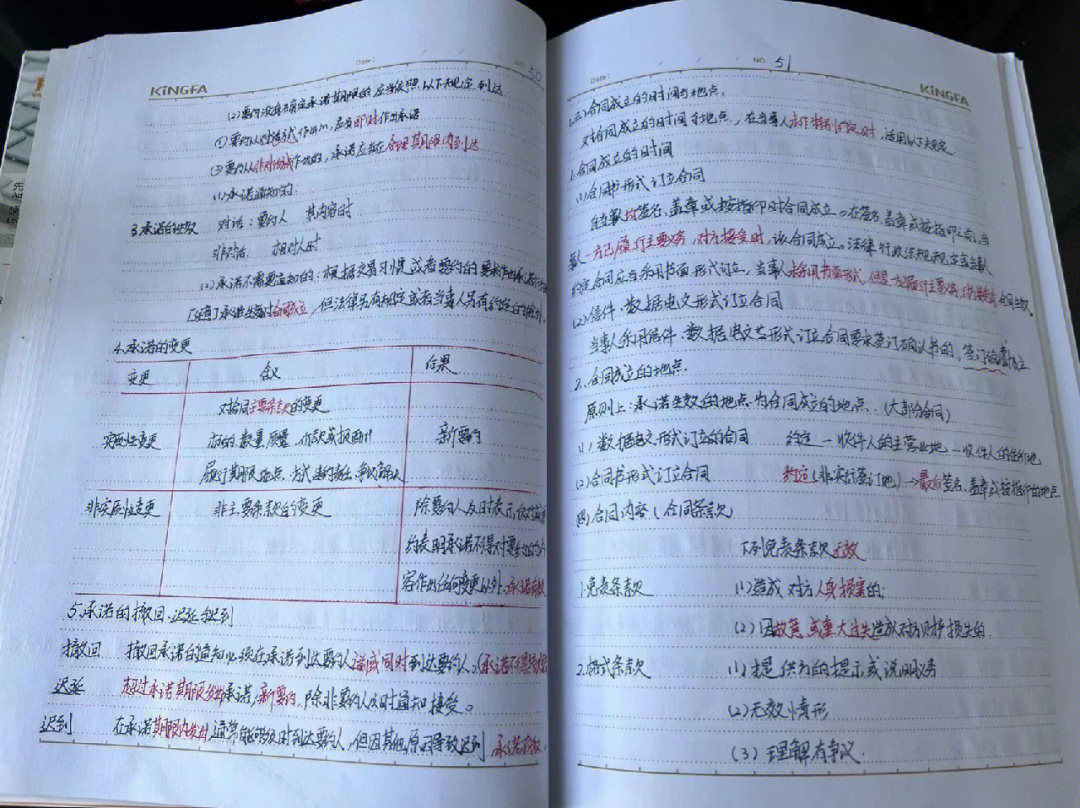 KINGFA
Date:
NO. 50
(2)要约没有确定承诺期限的,应当依照以下规定到达
①要约以对话方式作出的,应当即时作出承诺
②要约以非对话方式作出的,承诺应当在合理期限内到达
3.承诺的生效
(1)承诺通知的:
对话:要约人 其内容时
非对话: 相对人时
(2)承诺不需要通知的:根据交易习惯或者要约的要求作出承诺
承诺生效时合同成立,但法律另有规定或者当事人另有约定的除外。
4.承诺的变更
变更 含义 后果
实质性变更
对合同主要条款的变更
标的、数量、质量、价款或报酬
履行期限、地点、方式、违约责任、争议解决
新要约
非实质性变更 非主要条款的变更
除要约人及时表示
约表明承诺不得对要约的内
容作出任何变更以外,承诺有效
5.承诺的撤回、迟延、迟到
撤回 撤回承诺的通知必须在承诺到达要约人之前或同时到达要约人。(承诺不得
迟延 超过承诺期限发出承诺,新要约,除非要约人及时通知接受。
迟到 在承诺期限内发出,通常能够及时到达要约人,但因其他原因导致迟到,承诺有效
Date:
NO. 51
KINGFA
(三)合同成立的时间与地点。
对合同成立的时间与地点,在当事人未作特别约定时,适用以下规定
1.合同成立的时间
(1)合同书形式订立合同
自当事人均签名、盖章或按指印时合同成立。在签名、盖章或按指印之前,当
事人一方已履行主要义务,对方接受时,该合同成立。法律行政法规规定或当事人
约定合同应当采用书面形式订立,当事人未采用书面形式,但是一方履行主要义务,对方接受
(2)信件、数据电文形式订立合同
当事人采用信件、数据电文形式订立合同要求签订确认书的,签订
2.合同成立的地点
原则上:承诺生效的地点为合同成立的地点.(大部分合同)
(1)数据电文形式订立的合同 约定 — 收件人的主营业地 — 收件人的住所地
(2)合同书形式订立合同 约定(非实际签订地)→最后签名、盖章或按指印的地点
(四)合同内容(合同条款)
下列免责条款无效
1.免责条款 (1)造成对方人身损害的;
(2)因故意或重大过失造成对方财产损失的.
2.格式条款 (1)提供方的提示或说明义务
(2)无效情形
(3)理解有争议.